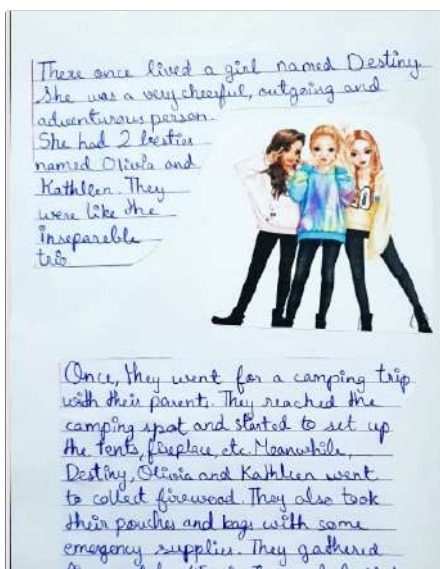 There once lived a girl named Destiny
She was a very cheerful, outgoing and
adventurous person.
She had 2 besties
named Olivia and
Kathleen. They
were like the
inseparable
trio
Once, they went for a camping trip
with their parents. They reached the
camping spot and started to set up
the tents, fireplace, etc. Meanwhile,
Destiny, Olivia and Kathleen went
to collect firewood. They also took
their pouches and bags with some
emergency supplies. They gathered